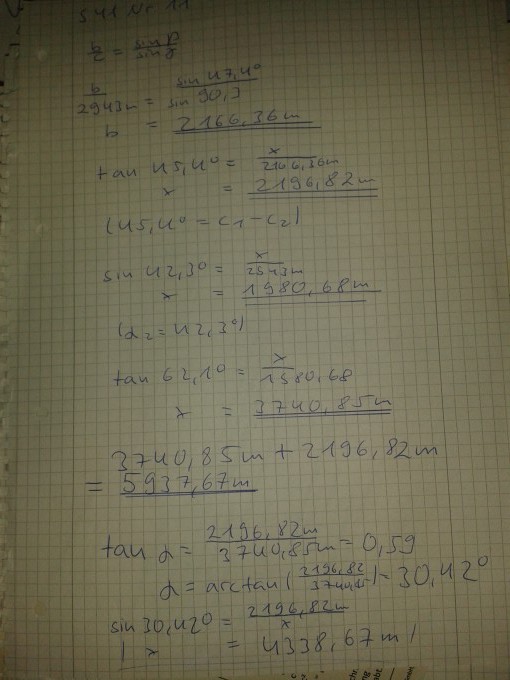 S41 Nr. 11
b/c = sin β/sin γ
b/2943m = sin 47,4°/sin 90,3
b = 2166,36m
tan 45,4° = x/2166,36m
x = 2196,82m
(45,4° = c1-c2)
sin 42,3° = x/2943m
x = 1980,68m
(α2 = 42,3°)
tan 62,1° = x/1980,68
x = 3740,85m
3740,85m + 2196,82m
= 5937,67m
tan α = 2196,82m/3740,85m = 0,59
α = arctan(2196,82/3740,85) = 30,42°
sin 30,42° = 2196,82m/x
| x = 4338,67m |